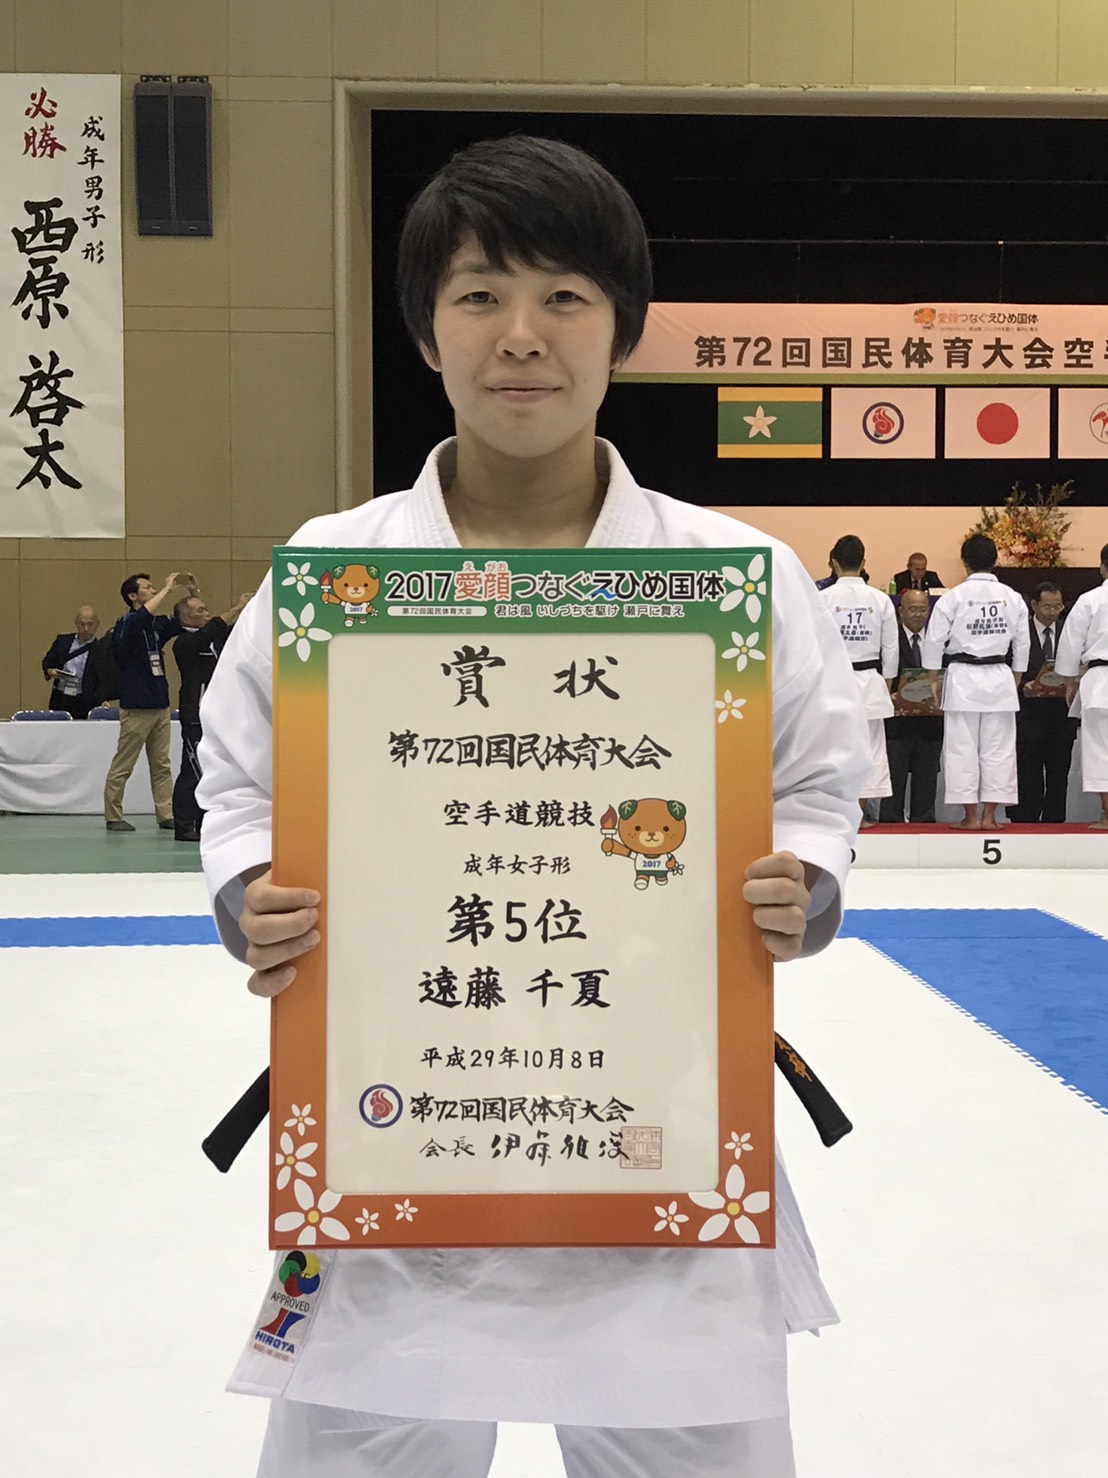 必勝
成年男子形
西原 啓太
愛顔つなぐえひめ国体
第72回国民体育大会空手
2017愛顔つなぐえひめ国体
えがお
第72回国民体育大会
君は風 いしづちを駆け 瀬戸に舞え
賞状
第72回国民体育大会
空手道競技
2017
成年女子形
第5位
遠藤 千夏
平成29年10月8日
第72回国民体育大会
会長 伊藤雅俊
17
10
5
APPROVED
HIROTA